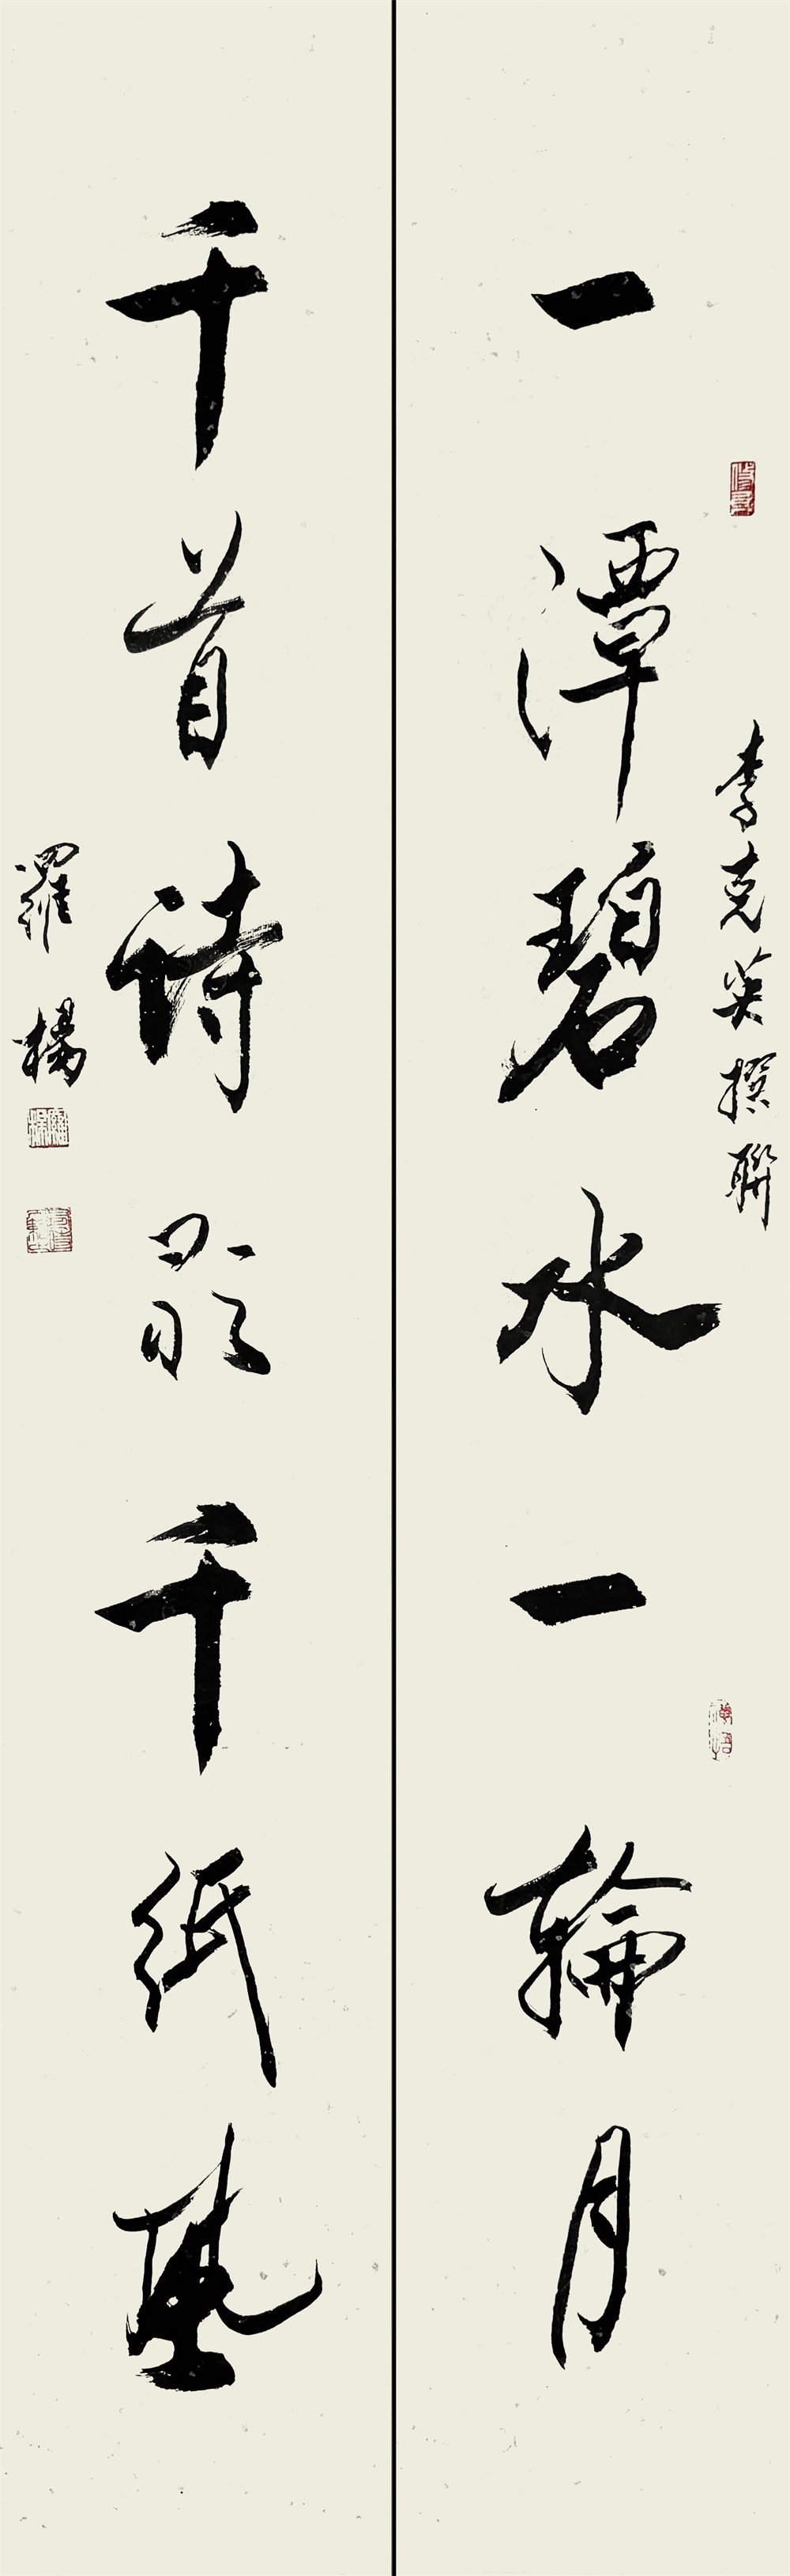 一潭碧水一輪月
李克英撰聯
千首詩千紙
羅楊